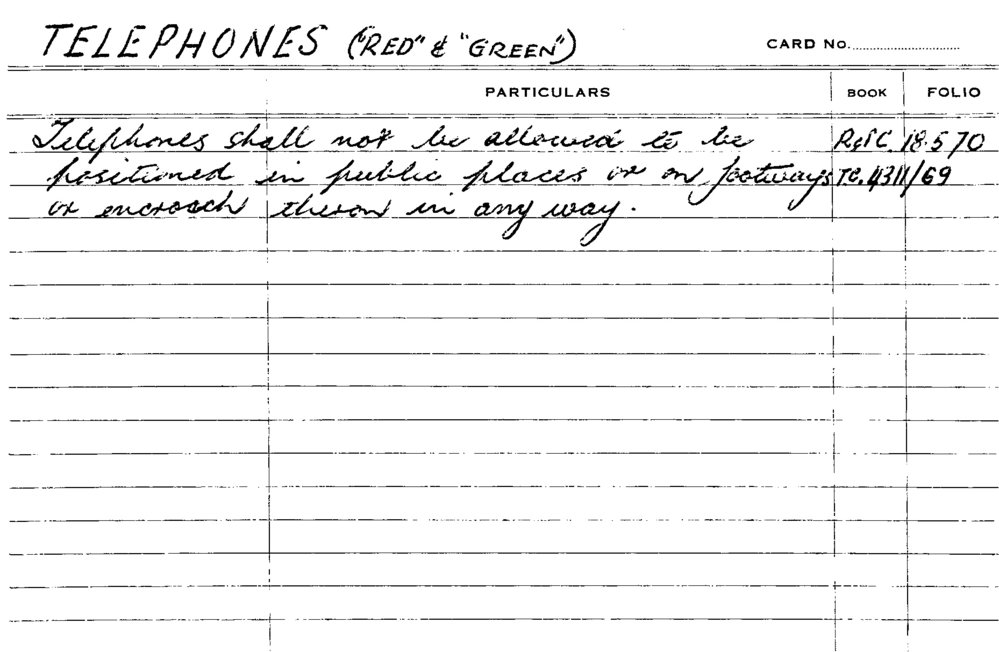 TELEPHONES ("RED" & "GREEN") CARD No.
PARTICULARS BOOK FOLIO
Telephones shall not be allowed to be 18.5.70
positioned in public places or on footways T.C. 4311/69
or encroach theron in any way.